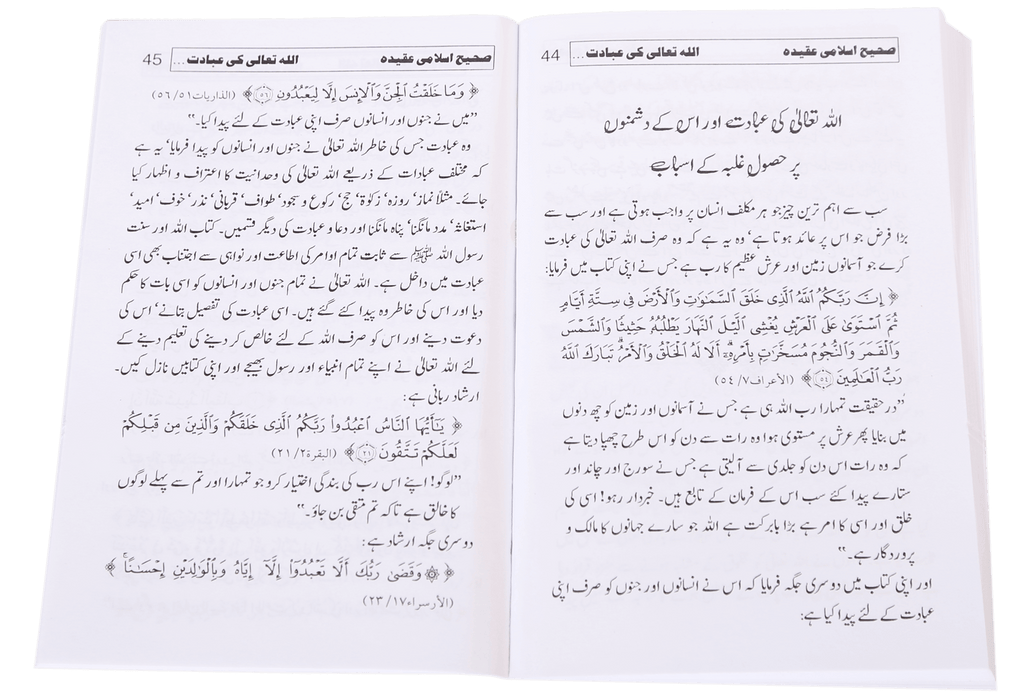 صحیح اسلامی عقیدہ
اللہ تعالی کی عبادت ...
44
اللہ تعالیٰ کی عبادت اور اس کے دشمنوں
پر حصولِ غلبہ کے اسباب
سب سے اہم ترین چیز جو ہر مکلف انسان پر واجب ہوتی ہے اور سب سے
بڑا فرض جو اس پر عائد ہوتا ہے‘ وہ یہ ہے کہ وہ صرف اللہ تعالیٰ کی عبادت
کرے جو آسمانوں زمین اور عرش عظیم کا رب ہے جس نے اپنی کتاب میں فرمایا:
﴿ إِنَّ رَبَّكُمُ اللَّهُ الَّذِي خَلَقَ السَّمَٰوَٰتِ وَالْأَرْضَ فِي سِتَّةِ أَيَّامٍ
ثُمَّ اسْتَوَىٰ عَلَى الْعَرْشِ يُغْشِي الَّيْلَ النَّهَارَ يَطْلُبُهُ حَثِيثًا وَالشَّمْسَ
وَالْقَمَرَ وَالنُّجُومَ مُسَخَّرَٰتٍ بِأَمْرِهِ ۗ أَلَا لَهُ الْخَلْقُ وَالْأَمْرُ ۗ تَبَارَكَ اللَّهُ
رَبُّ الْعَالَمِينَ (٥٤) ﴾ (الأعراف٧/ ٥٤)
”در حقیقت تمہارا رب اللہ ہی ہے جس نے آسمانوں اور زمین کو چھ دنوں
میں بنایا پھر عرش پر مستوی ہوا وہ رات سے دن کو اس طرح چھپا دیتا ہے
کہ وہ رات اس دن کو جلدی سے آلیتی ہے جس نے سورج اور چاند اور
ستارے پیدا کئے سب اس کے فرمان کے تابع ہیں۔ خبردار رہو! اسی کی
خلق اور اسی کا امر ہے بڑا بابرکت ہے اللہ جو سارے جہانوں کا مالک و
پروردگار ہے۔“
اور اپنی کتاب میں دوسری جگہ فرمایا کہ اس نے انسانوں اور جنوں کو صرف اپنی
عبادت کے لئے پیدا کیا ہے:
صحیح اسلامی عقیدہ
اللہ تعالی کی عبادت ...
45
﴿ وَمَا خَلَقْتُ الْجِنَّ وَالْإِنسَ إِلَّا لِيَعْبُدُونِ (٥٦) ﴾ (الذاریات٥١/ ٥٦)
”میں نے جنوں اور انسانوں صرف اپنی عبادت کے لئے پیدا کیا۔“
وہ عبادت جس کی خاطر اللہ تعالیٰ نے جنوں اور انسانوں کو پیدا فرمایا‘ یہ ہے
کہ مختلف عبادات کے ذریعے اللہ تعالیٰ کی وحدانیت کا اعتراف و اظہار کیا
جائے۔ مثلاً نماز‘ روزہ‘ زکوٰۃ‘ حج‘ رکوع و سجود‘ طواف‘ قربانی‘ نذر‘ خوف‘ امید‘
استغاثہ‘ مدد مانگنا‘ پناہ مانگنا اور دعا و عبادت کی دیگر قسمیں۔ کتاب اللہ اور سنت
رسول اللہ ﷺ سے ثابت تمام اوامر کی اطاعت اور نواہی سے اجتناب بھی اسی
عبادت میں داخل ہے۔ اللہ تعالیٰ نے تمام جنوں اور انسانوں کو اسی بات کا حکم
دیا اور اس کی خاطر وہ پیدا کئے گئے ہیں۔ اسی عبادت کی تفصیل بتانے‘ اس کی
دعوت دینے اور اس کو صرف اللہ کے لئے خالص کر دینے کی تعلیم دینے کے
لئے اللہ تعالیٰ نے اپنے تمام انبیاء اور رسول بھیجے اور اپنی کتابیں نازل کیں۔
ارشاد ربانی ہے:
﴿ يَٰٓأَيُّهَا النَّاسُ اعْبُدُوا رَبَّكُمُ الَّذِي خَلَقَكُمْ وَالَّذِينَ مِن قَبْلِكُمْ
لَعَلَّكُمْ تَتَّقُونَ (٢١) ﴾ (البقرة٢/ ٢١)
”لوگو! اپنے اس رب کی بندگی اختیار کرو جو تمہارا اور تم سے پہلے لوگوں
کا خالق ہے تاکہ تم متقی بن جاؤ۔“
دوسری جگہ ارشاد ہے:
﴿ ۞ وَقَضَىٰ رَبُّكَ أَلَّا تَعْبُدُوا إِلَّا إِيَّاهُ وَبِالْوَالِدَيْنِ إِحْسَٰنًا ۚ ﴾
(الأسراء١٧/ ٢٣)